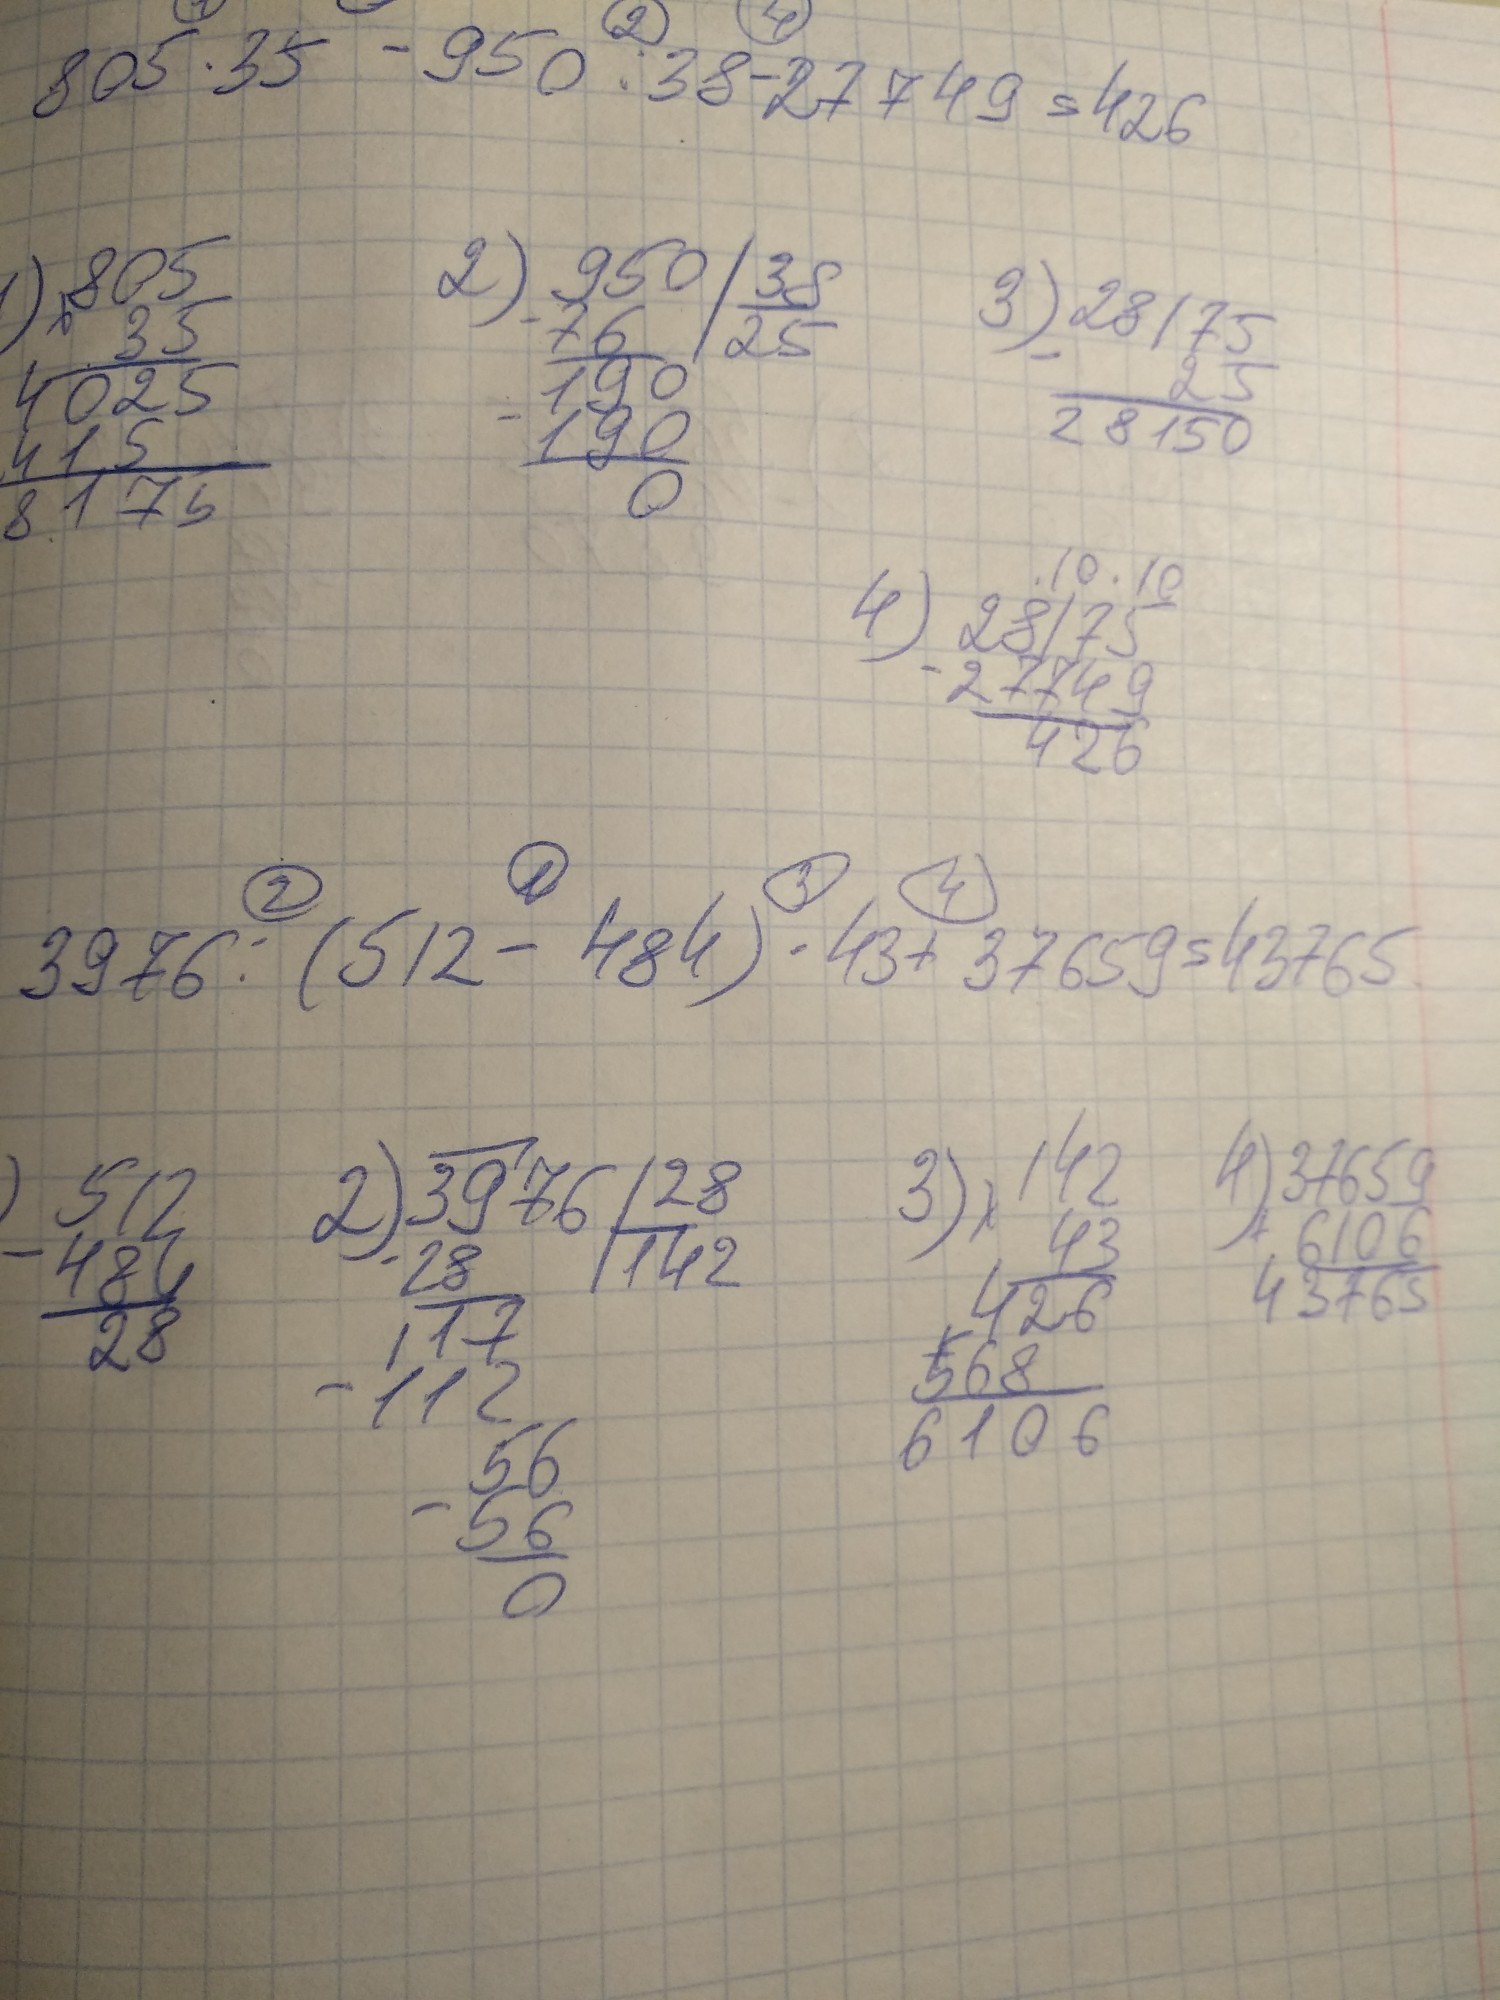 ① ② ④
805 · 35 - 950 : 38 - 27749 = 426
1) 805 2) 950 | 38 3) 28175
x 35 - 76 25 - 25
4025 190 28150
415 - 190
8175 0
10 10
4) 28175
- 27749
426
② ① ③ ④
3976 : (512 - 484) · 43 + 37659 = 43765
) 512 2) 3976 | 28 3) x 142 4) 37659
- 484 - 28 142 43 + 6106
28 117 426 43765
- 112 + 568
56 6106
- 56
0